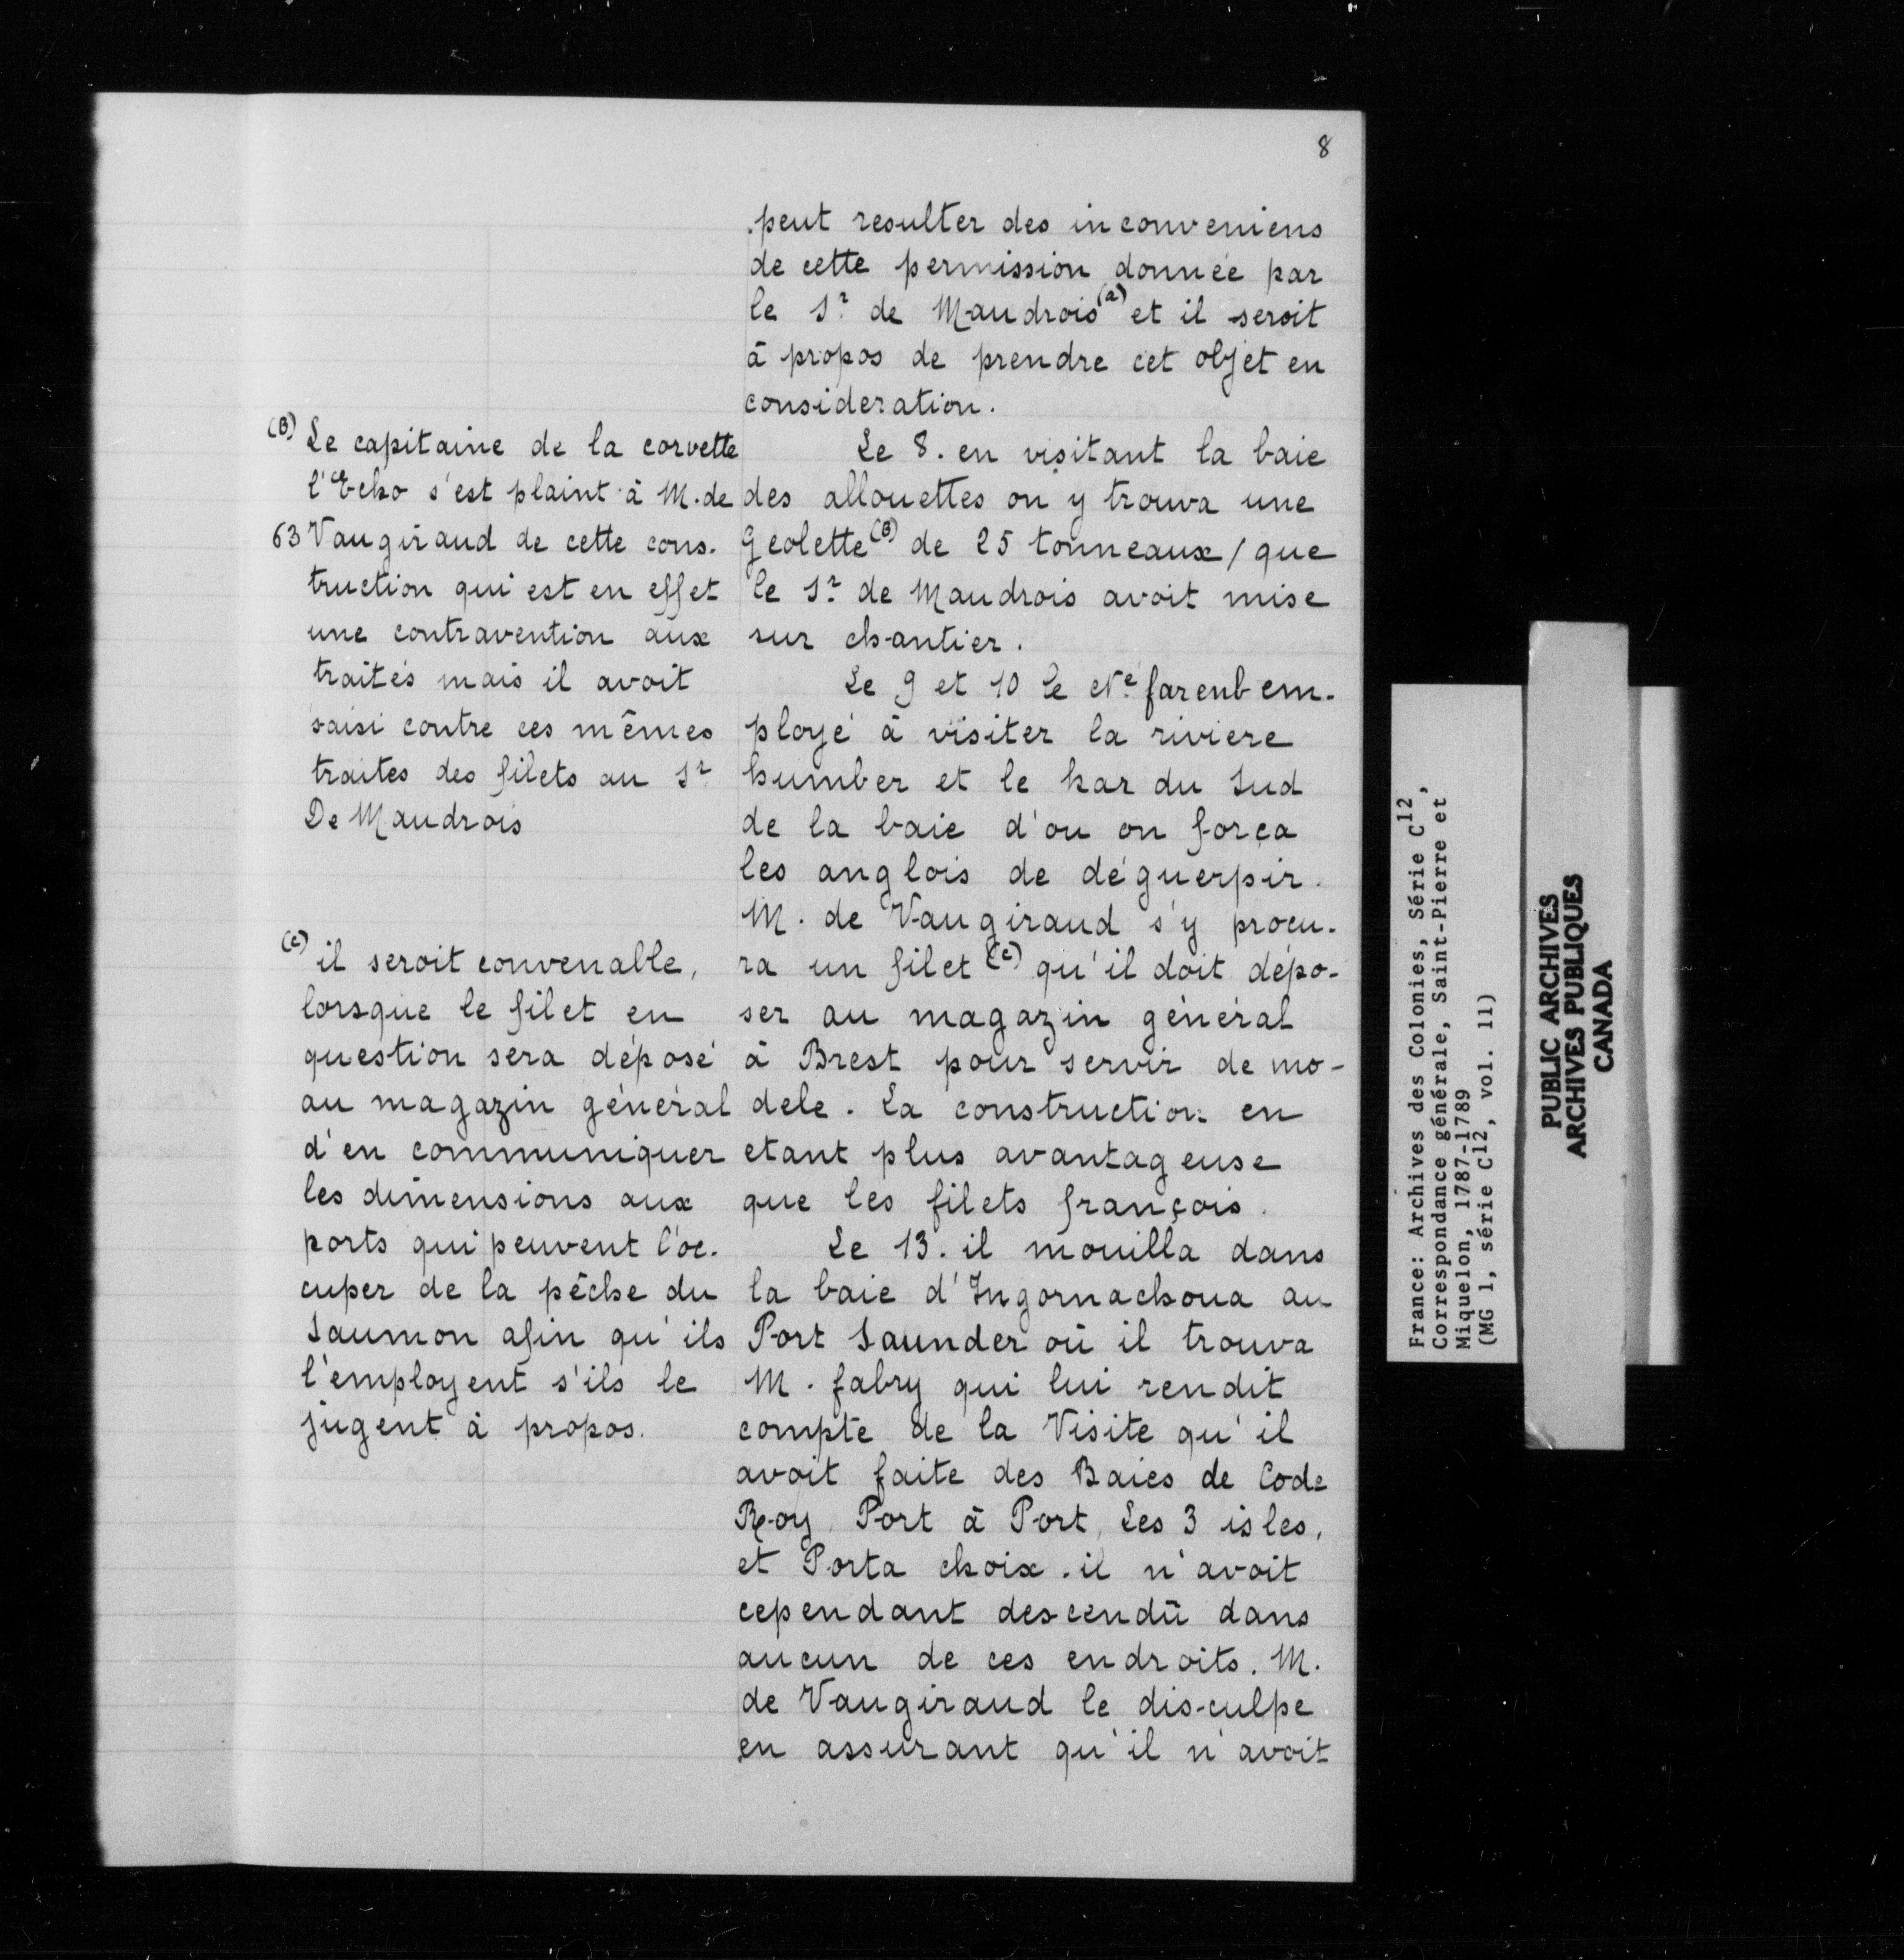 8
peut resulter des inconveniens
de cette permission donnée par
le Sr. de Maudrois (a) et il seroit
à propos de prendre cet objet en
consideration.
Le 8. en visitant la baie
des allouettes on y trouva une
Geolette (B) de 25 tonneaux / que
le Sr. de Maudrois avoit mise
sur chantier.
Le 9 et 10 le furent em-
ployé à visiter la riviere
humber et le har du Sud
de la baie d'ou on força
les anglois de déguerpir.
M. de Vaugiraud s'y procu-
ra un filet (c) qu'il doit dépo-
ser au magazin général
à Brest pour servir de mo-
dele. La construction en
etant plus avantageuse
que les filets françois.
Le 13. il mouilla dans
la baie d'Ingornachoua au
Port Saunder où il trouva
M. fabry qui lui rendit
compte de la Visite qu'il
avoit faite des Baies de Code
Roy, Port à Port, Les 3 isles,
et Porta choix. il n'avoit
cependant descendû dans
aucun de ces endroits. M.
de Vaugiraud le disculpe
en assurant qu'il n'avoit
(B) Le capitaine de la corvette
l'Echo s'est plaint à M. de
63 Vaugiraud de cette cons-
truction qui est en effet
une contravention aux
traités mais il avoit
saisi contre ces mêmes
traites des filets au Sr
De Maudrois
(c) il seroit convenable,
lorsque le filet en
question sera déposé
au magazin général
d'en communiquer
les dimensions aux
ports qui peuvent l'oc-
cuper de la pêche du
Saumon afin qu'ils
l'employent s'ils le
jugent à propos.
France: Archives des Colonies, Série C12,
Correspondance générale, Saint-Pierre et
Miquelon, 1787-1789
(MG 1, série C12, vol. 11)
PUBLIC ARCHIVES
ARCHIVES PUBLIQUES
CANADA